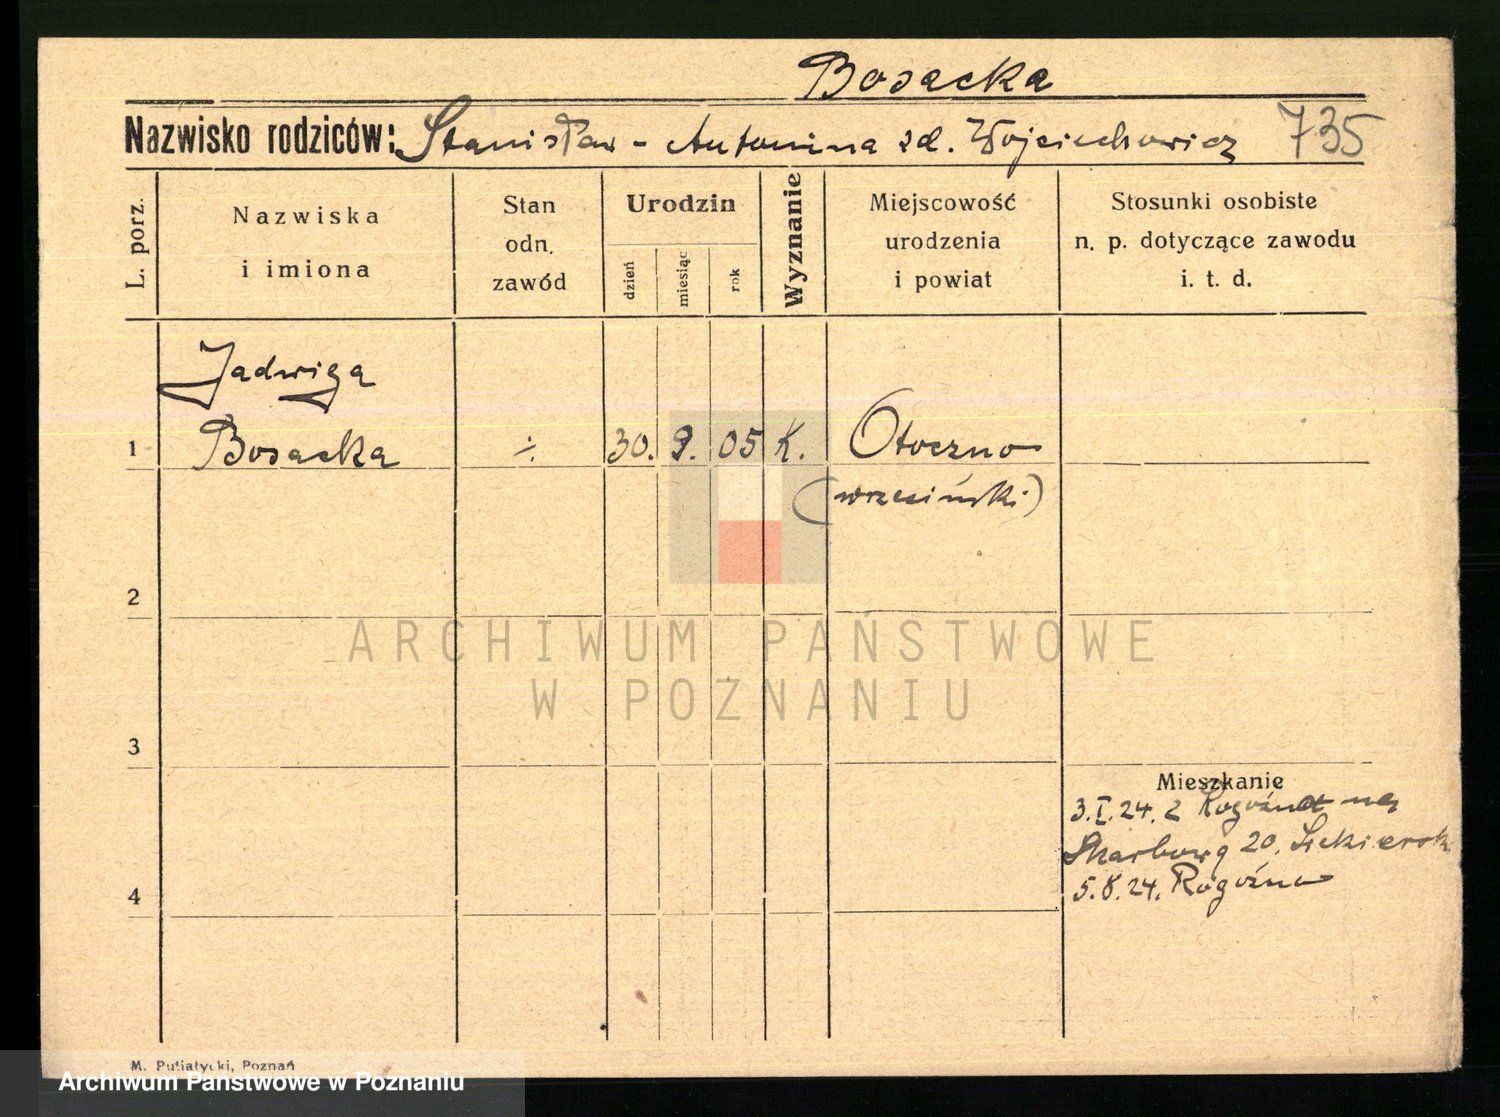 Bosacka
Nazwisko rodziców: Stanisław - Antonina zd. Wojciechowicz 735
L. porz.
Nazwiska
i imiona
Stan
odn.
zawód
Urodzin
dzień
miesiąc
rok
Wyznanie
Miejscowość
urodzenia
i powiat
Stosunki osobiste
n. p. dotyczące zawodu
i. t. d.
Jadwiga
1 Bosacka ÷ 30. 9. 05 K. Otoczno
(wrzesiński)
2
3
4
Mieszkanie
3.I.24. z Rogoźna na
Skarbową 20.
5.8.24. Rogoźno
M. Putiatycki, Poznań
ARCHIWUM PAŃSTWOWE
W POZNANIU
Archiwum Państwowe w Poznaniu